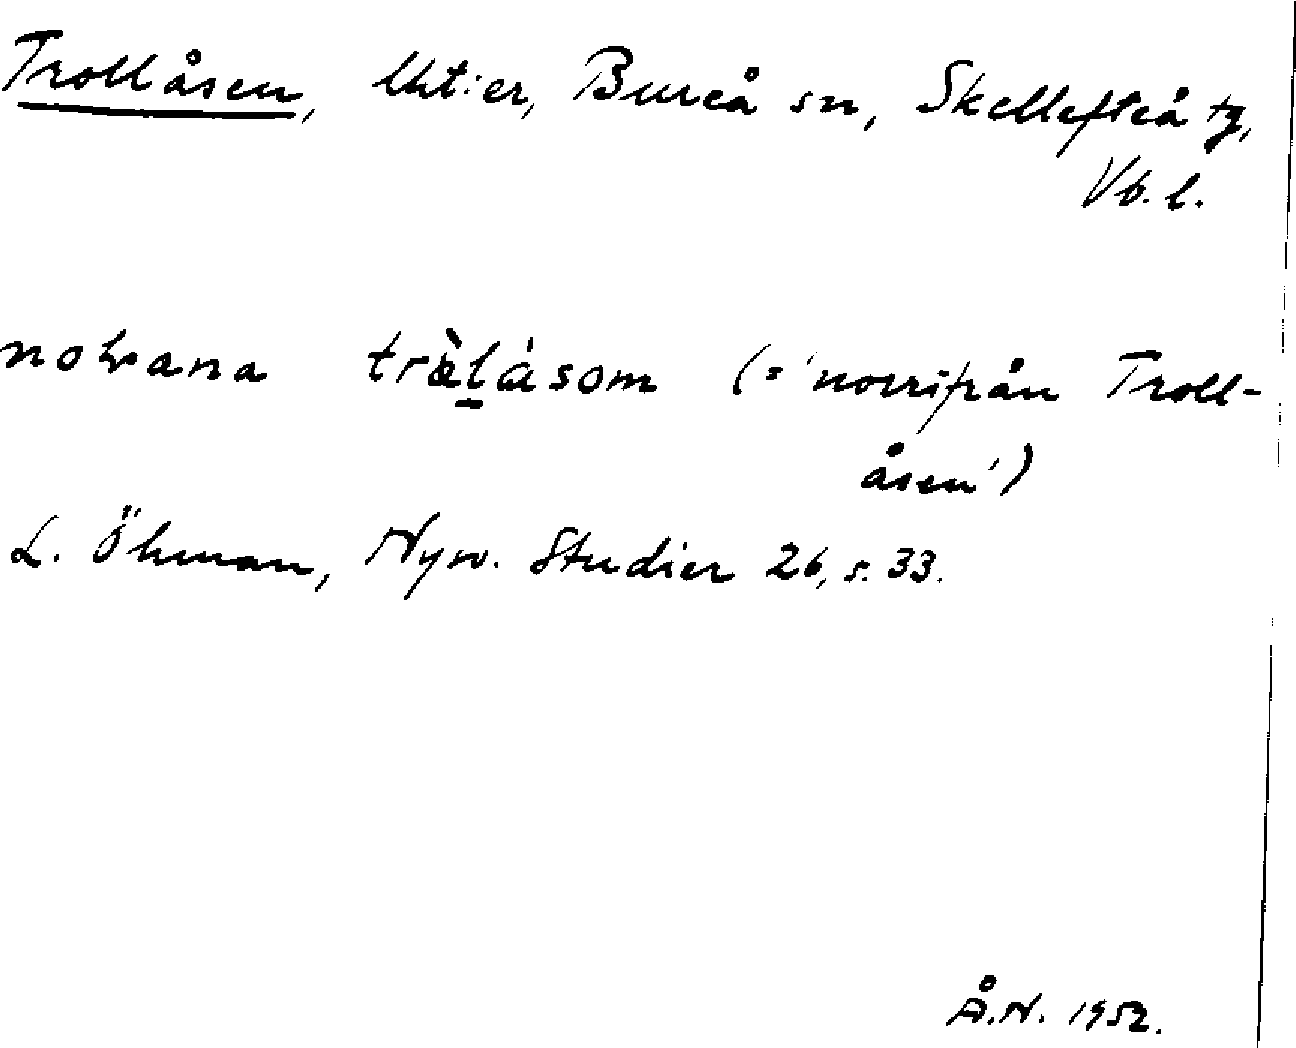 Trollåsen, Ukt:er, Bureå sn, Skellefteå tg,
Vb. l.
tràḷásom (= 'norrifrån Troll-
åsen')
L. Öhman, Nysv. Studier 26, s. 33.
Å.N. 1952.